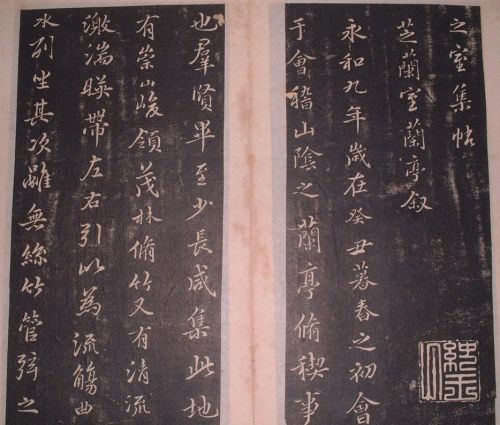 之室集帖
芝蘭室蘭亭叙
永和九年歲在癸丑暮春之初會
于會稽山陰之蘭亭脩稧事
也羣賢畢至少長咸集此地
有崇山峻領茂林脩竹又有清流
激湍暎帶左右引以為流觴曲
水列坐其次雖無絲竹管弦之